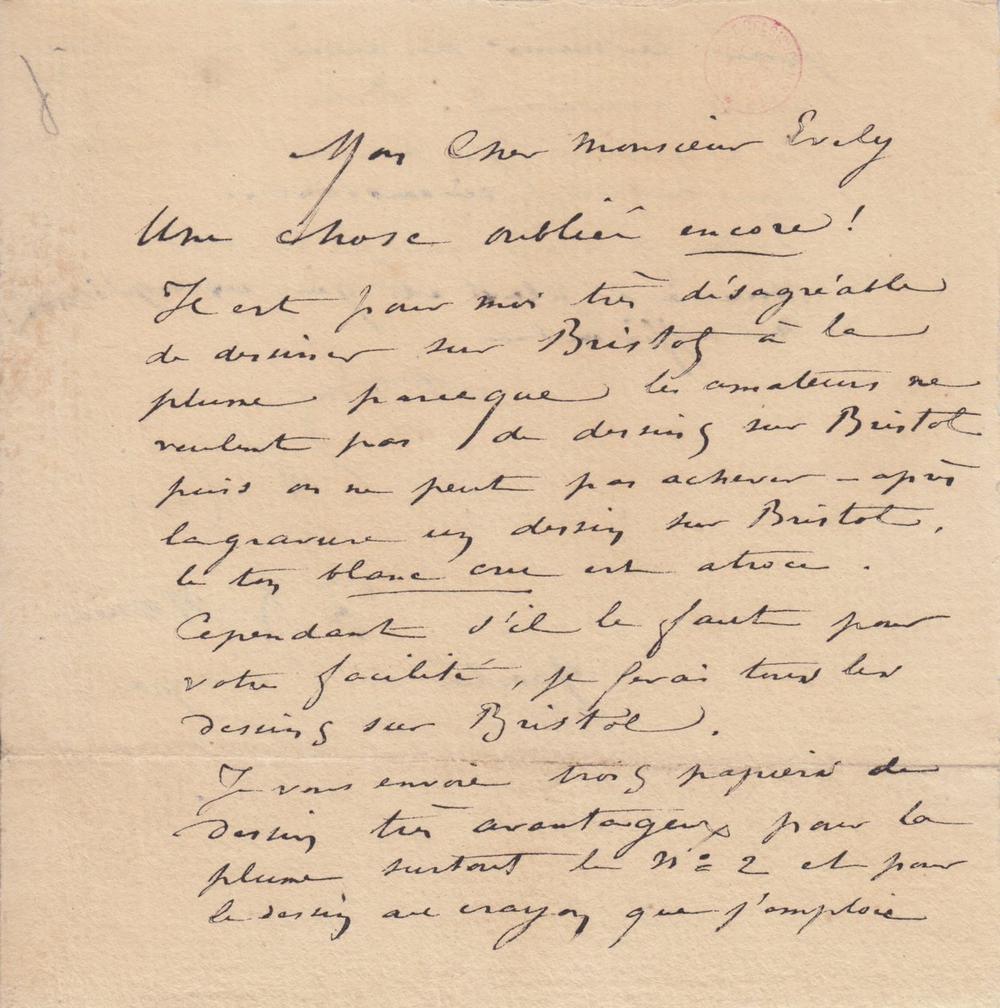 Mon Cher Monsieur Evely
Une chose oubliée encore !
Il est pour moi très désagréable
de dessiner sur Bristol à la
plume parceque les amateurs ne
veulent pas de dessins sur Bristol
puis on ne peut pas achever – après
la gravure un dessin sur Bristol,
le ton blanc cru est atroce .
Cependant s'il le faut pour
votre facilité, je ferai tous les
dessins sur Bristol .
Je vous envoie trois papiers de
dessin très avantageux pour la
plume surtout le N° 2 et pour
le dessin au crayon que j'emploie